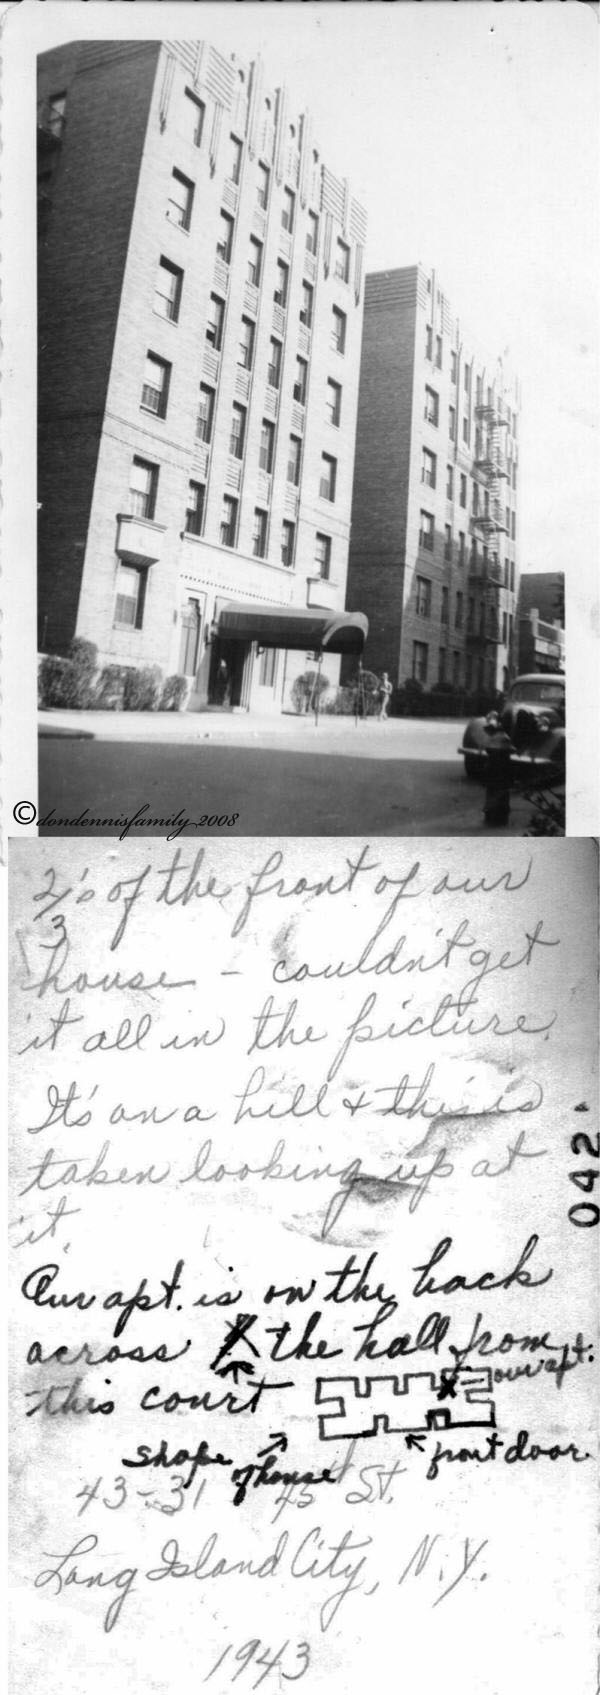 ©dondennisfamily 2008
2/3's of the front of our
house – couldn't get
it all in the picture.
It's on a hill & this is
taken looking up at
it.
042.
Our apt. is on the back
across the hall from
this court
our apt.
shape of house
front door
43-31 45 St.
Long Island City, N.Y.
1943